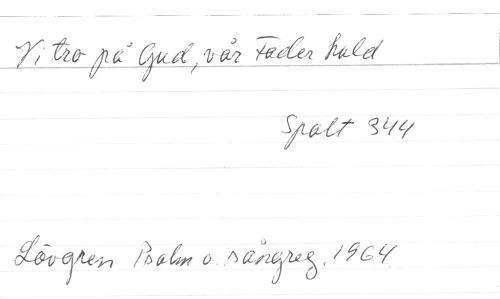 Vi tro på Gud, vår Fader huld
Spalt 344
Lövgren Psalm o. sångreg. 1964